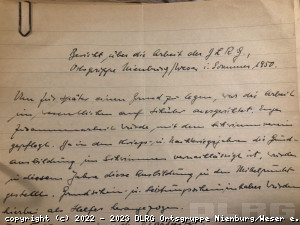 Bericht über die Arbeit der D L R G,
Ortsgruppe Nienburg/Weser i. Sommer 1950.
Um für später einen Grund zu legen, war die Arbeit
im wesentlichen auf Schüler ausgerichtet. Enge
Zusammenarbeit wurde mit dem Schwimmverein
gepflegt. Da in den Kriegs- u. Nachkriegsjahren die Grund-
ausbildung im Schwimmen vernachlässigt ist, wurde
in diesem Jahre diese Ausbildung in den Mittelpunkt
gestellt. Grundschein- u. Leistungsscheininhaber wurden
hierbei als Helfer herangezogen.
DLRG
copyright (c) 2022 - 2023 DLRG Ortsgruppe Nienburg/Weser e.